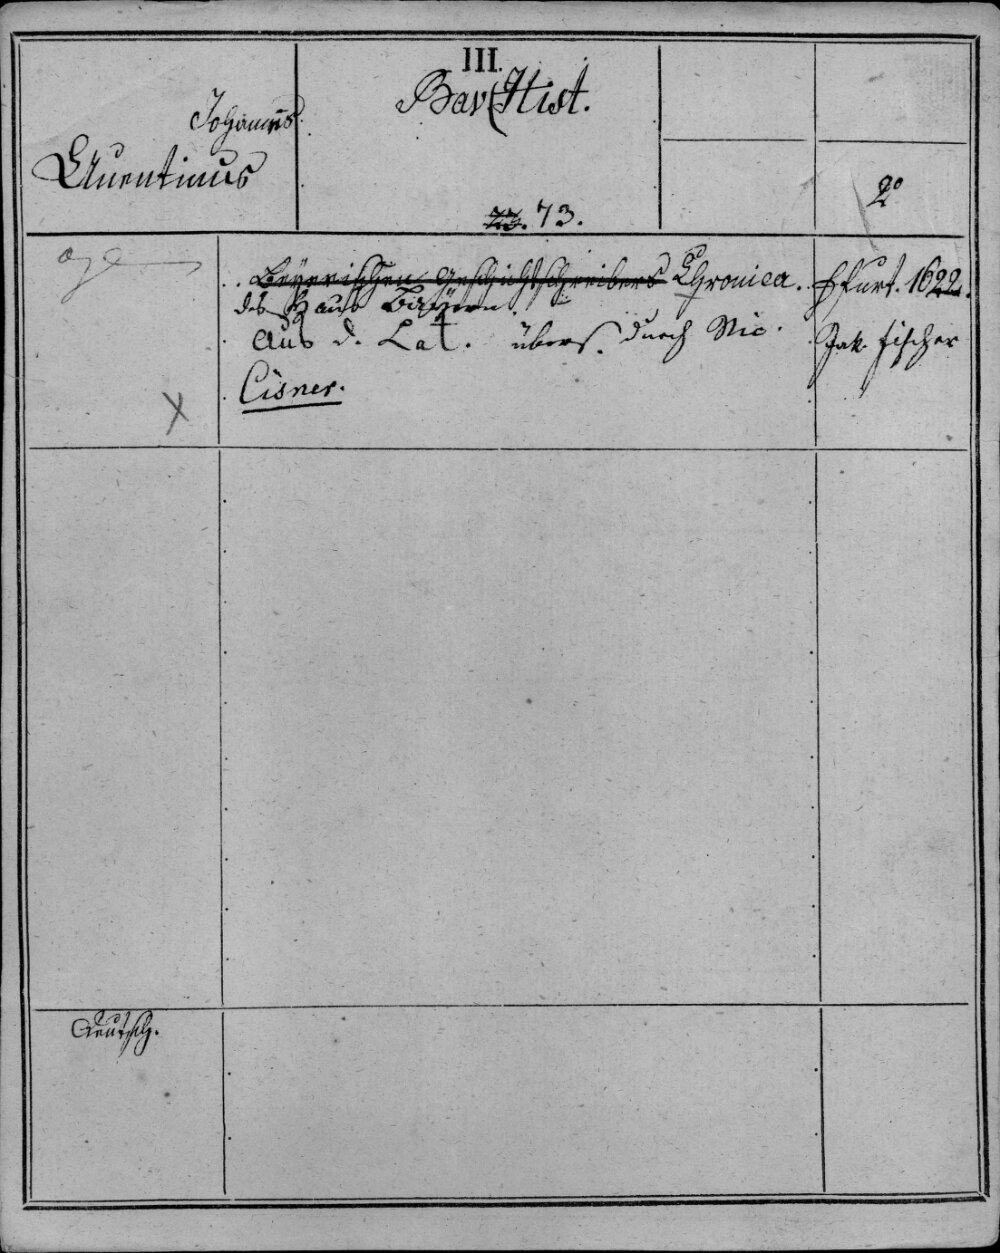 III.
Bav. Hist.
Johannes
Auentinus
2°
73. 73.
Beyerischen Geschichtschreibers Chronica.
des Haus Bayern.
Aus d. Lat. übers. durch Nic.
Cisner.
Ffurt. 1622.
Jak. Fischer
X
Deutsch.